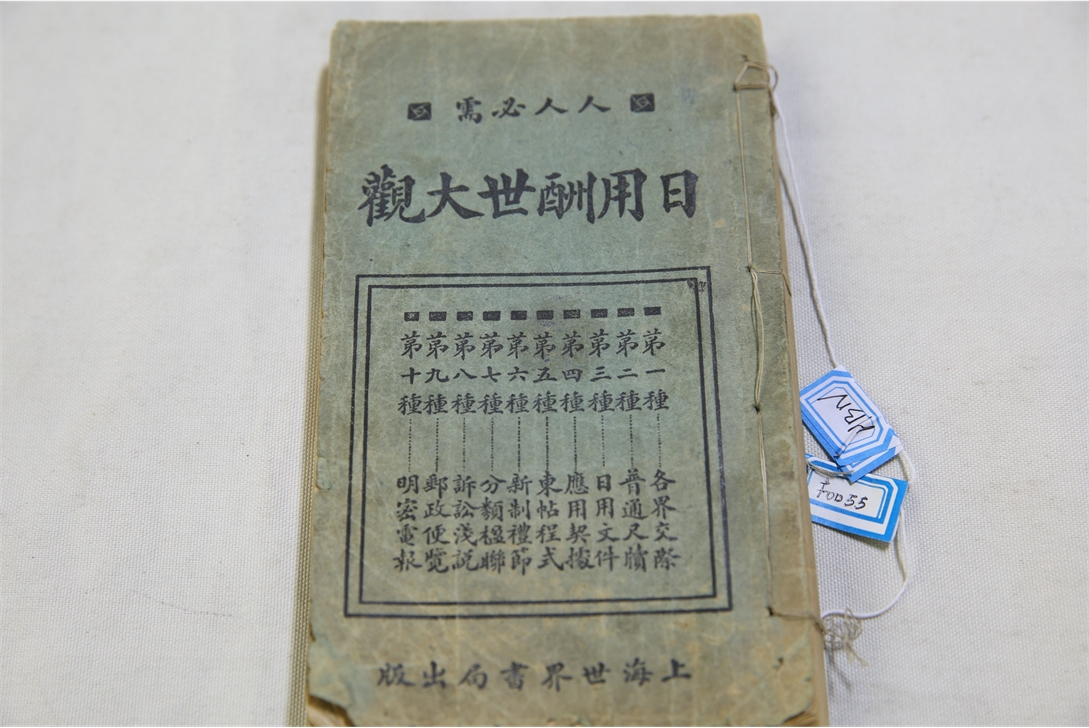 人人必需
日用酬世大觀
第一種 各界交際
第二種 普通尺牘
第三種 日用文件
第四種 應用契據
第五種 柬帖程式
第六種 新制禮節
第七種 分類楹聯
第八種 訴訟淺説
第九種 郵政便覽
第十種 明密電報
上海世界書局出版
HBN
FOD55